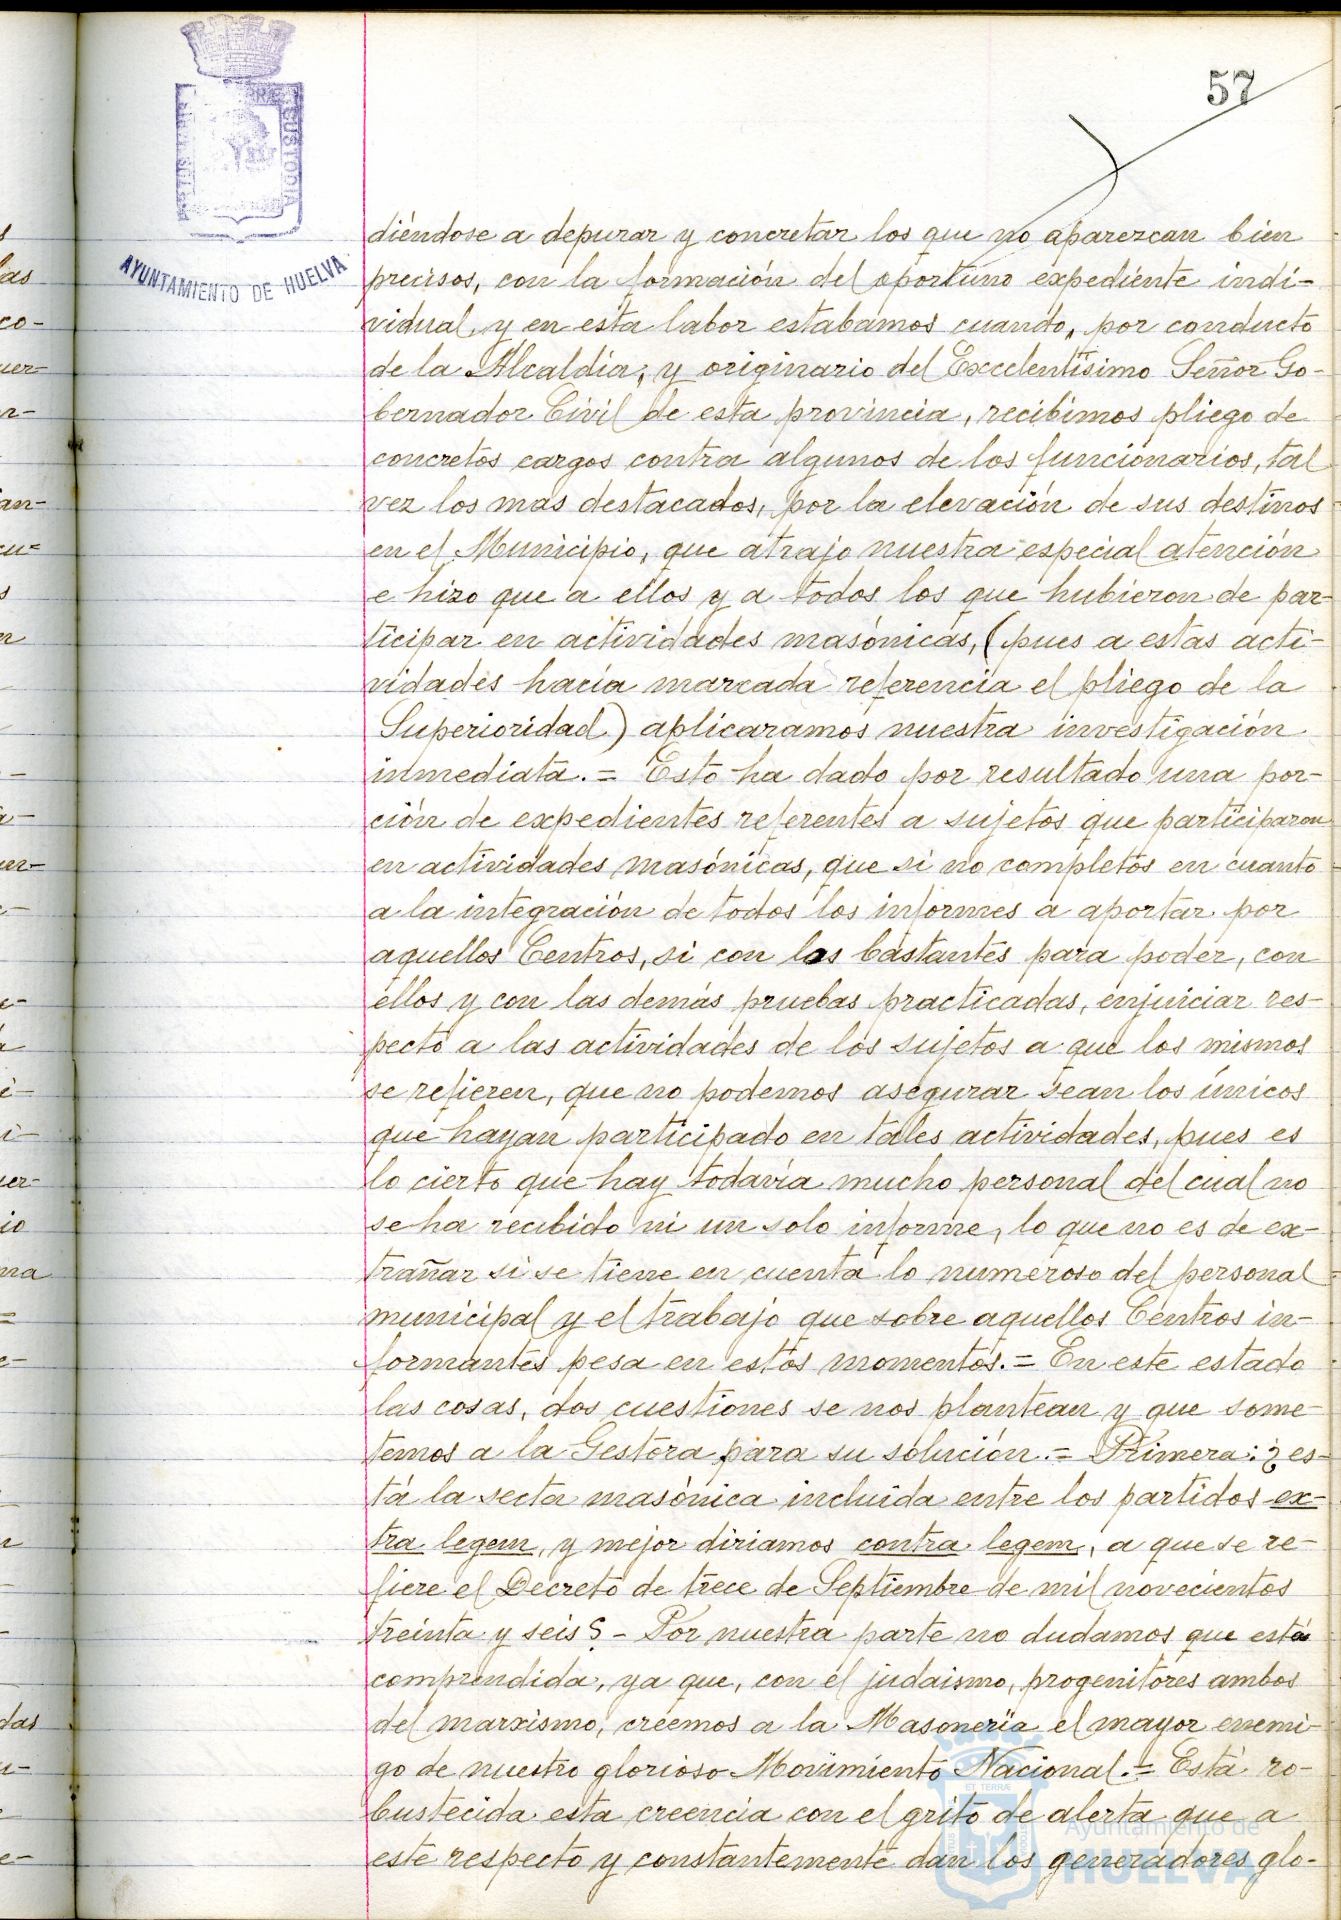 57
AYUNTAMIENTO DE HUELVA
CUSTODIA
diéndose a depurar y concretar los que no aparezcan bien
precisos, con la formación del oportuno expediente indi-
vidual, y en esta labor estabamos cuando, por conducto
de la Alcaldía, y originario del Excelentísimo Señor Go-
bernador Civil de esta provincia, recibimos pliego de
concretos cargos contra algunos de los funcionarios, tal
vez los mas destacados, por la elevación de sus destinos
en el Municipio, que atrajo nuestra especial atención
e hizo que a ellos y a todos los que hubieron de par-
ticipar en actividades masónicas, (pues a estas acti-
vidades hacía marcada referencia el pliego de la
Superioridad) aplicaramos nuestra investigación
inmediata.= Esto ha dado por resultado una por-
ción de expedientes referentes a sujetos que participaron
en actividades masónicas, que si no completos en cuanto
a la integración de todos los informes a aportar por
aquellos Centros, si con los bastantes para poder, con
ellos y con las demás pruebas practicadas, enjuiciar res-
pecto a las actividades de los sujetos a que los mismos
se refieren, que no podemos asegurar sean los únicos
que hayan participado en tales actividades, pues es
lo cierto que hay todavía mucho personal del cual no
se ha recibido ni un solo informe, lo que no es de ex-
trañar si se tiene en cuenta lo numeroso del personal
municipal y el trabajo que sobre aquellos Centros in-
formantes pesa en estos momentos.= En este estado
las cosas, dos cuestiones se nos plantean y que some-
temos a la Gestora para su solución.= Primera: ¿es-
tá la secta masónica incluida entre los partidos ex-
tra legem, y mejor diriamos contra legem, a que se re-
fiere el Decreto de trece de Septiembre de mil novecientos
treinta y seis? - Por nuestra parte no dudamos que está
comprendida, ya que, con el judaismo, progenitores ambos
del marxismo, creemos a la Masonería el mayor enemi-
go de nuestro glorioso Movimiento Nacional.= Está ro-
bustecida esta creencia con el grito de alerta que a
este respecto y constantemente dan los generadores glo-
ET TERRÆ
Ayuntamiento de
HUELVA